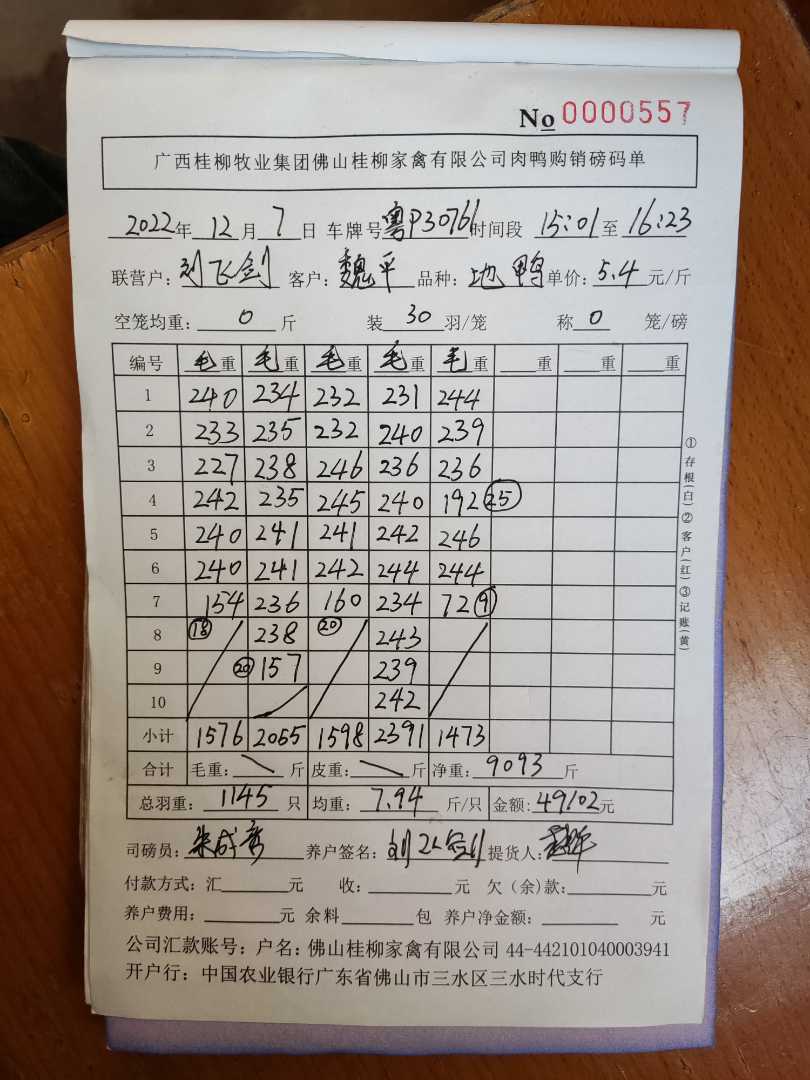 No 0000557
广西桂柳牧业集团佛山桂柳家禽有限公司肉鸭购销磅码单
2022年 12月 7日 车牌号 粤P30761 时间段 15:01 至 16:23
联营户: 刘飞剑 客户: 魏平 品种: 地鸭 单价: 5.4 元/斤
空笼均重: 0 斤 装 30 羽/笼 称 0 笼/磅
编号 毛重 毛重 毛重 毛重 毛重 重 重 重
1 240 234 232 231 244
2 233 235 232 240 239
3 227 238 246 236 236
4 242 235 245 240 192 25
5 240 241 241 242 246
6 240 241 242 244 244
7 154 236 160 234 72 9
8 18 238 20 243
9 20 157 239
10 242
小计 1576 2055 1598 2391 1473
合计 毛重: 斤 皮重: 斤 净重: 9093 斤
总羽重: 1145 只 均重: 7.94 斤/只 金额: 49102元
司磅员: 养户签名: 提货人:
付款方式: 汇 元 收: 元 欠(余)款: 元
养户费用: 元 余料 包 养户净金额: 元
公司汇款账号: 户名: 佛山桂柳家禽有限公司 44-442101040003941
开户行: 中国农业银行广东省佛山市三水区三水时代支行
①存根(白)②客户(红)③记账(黄)